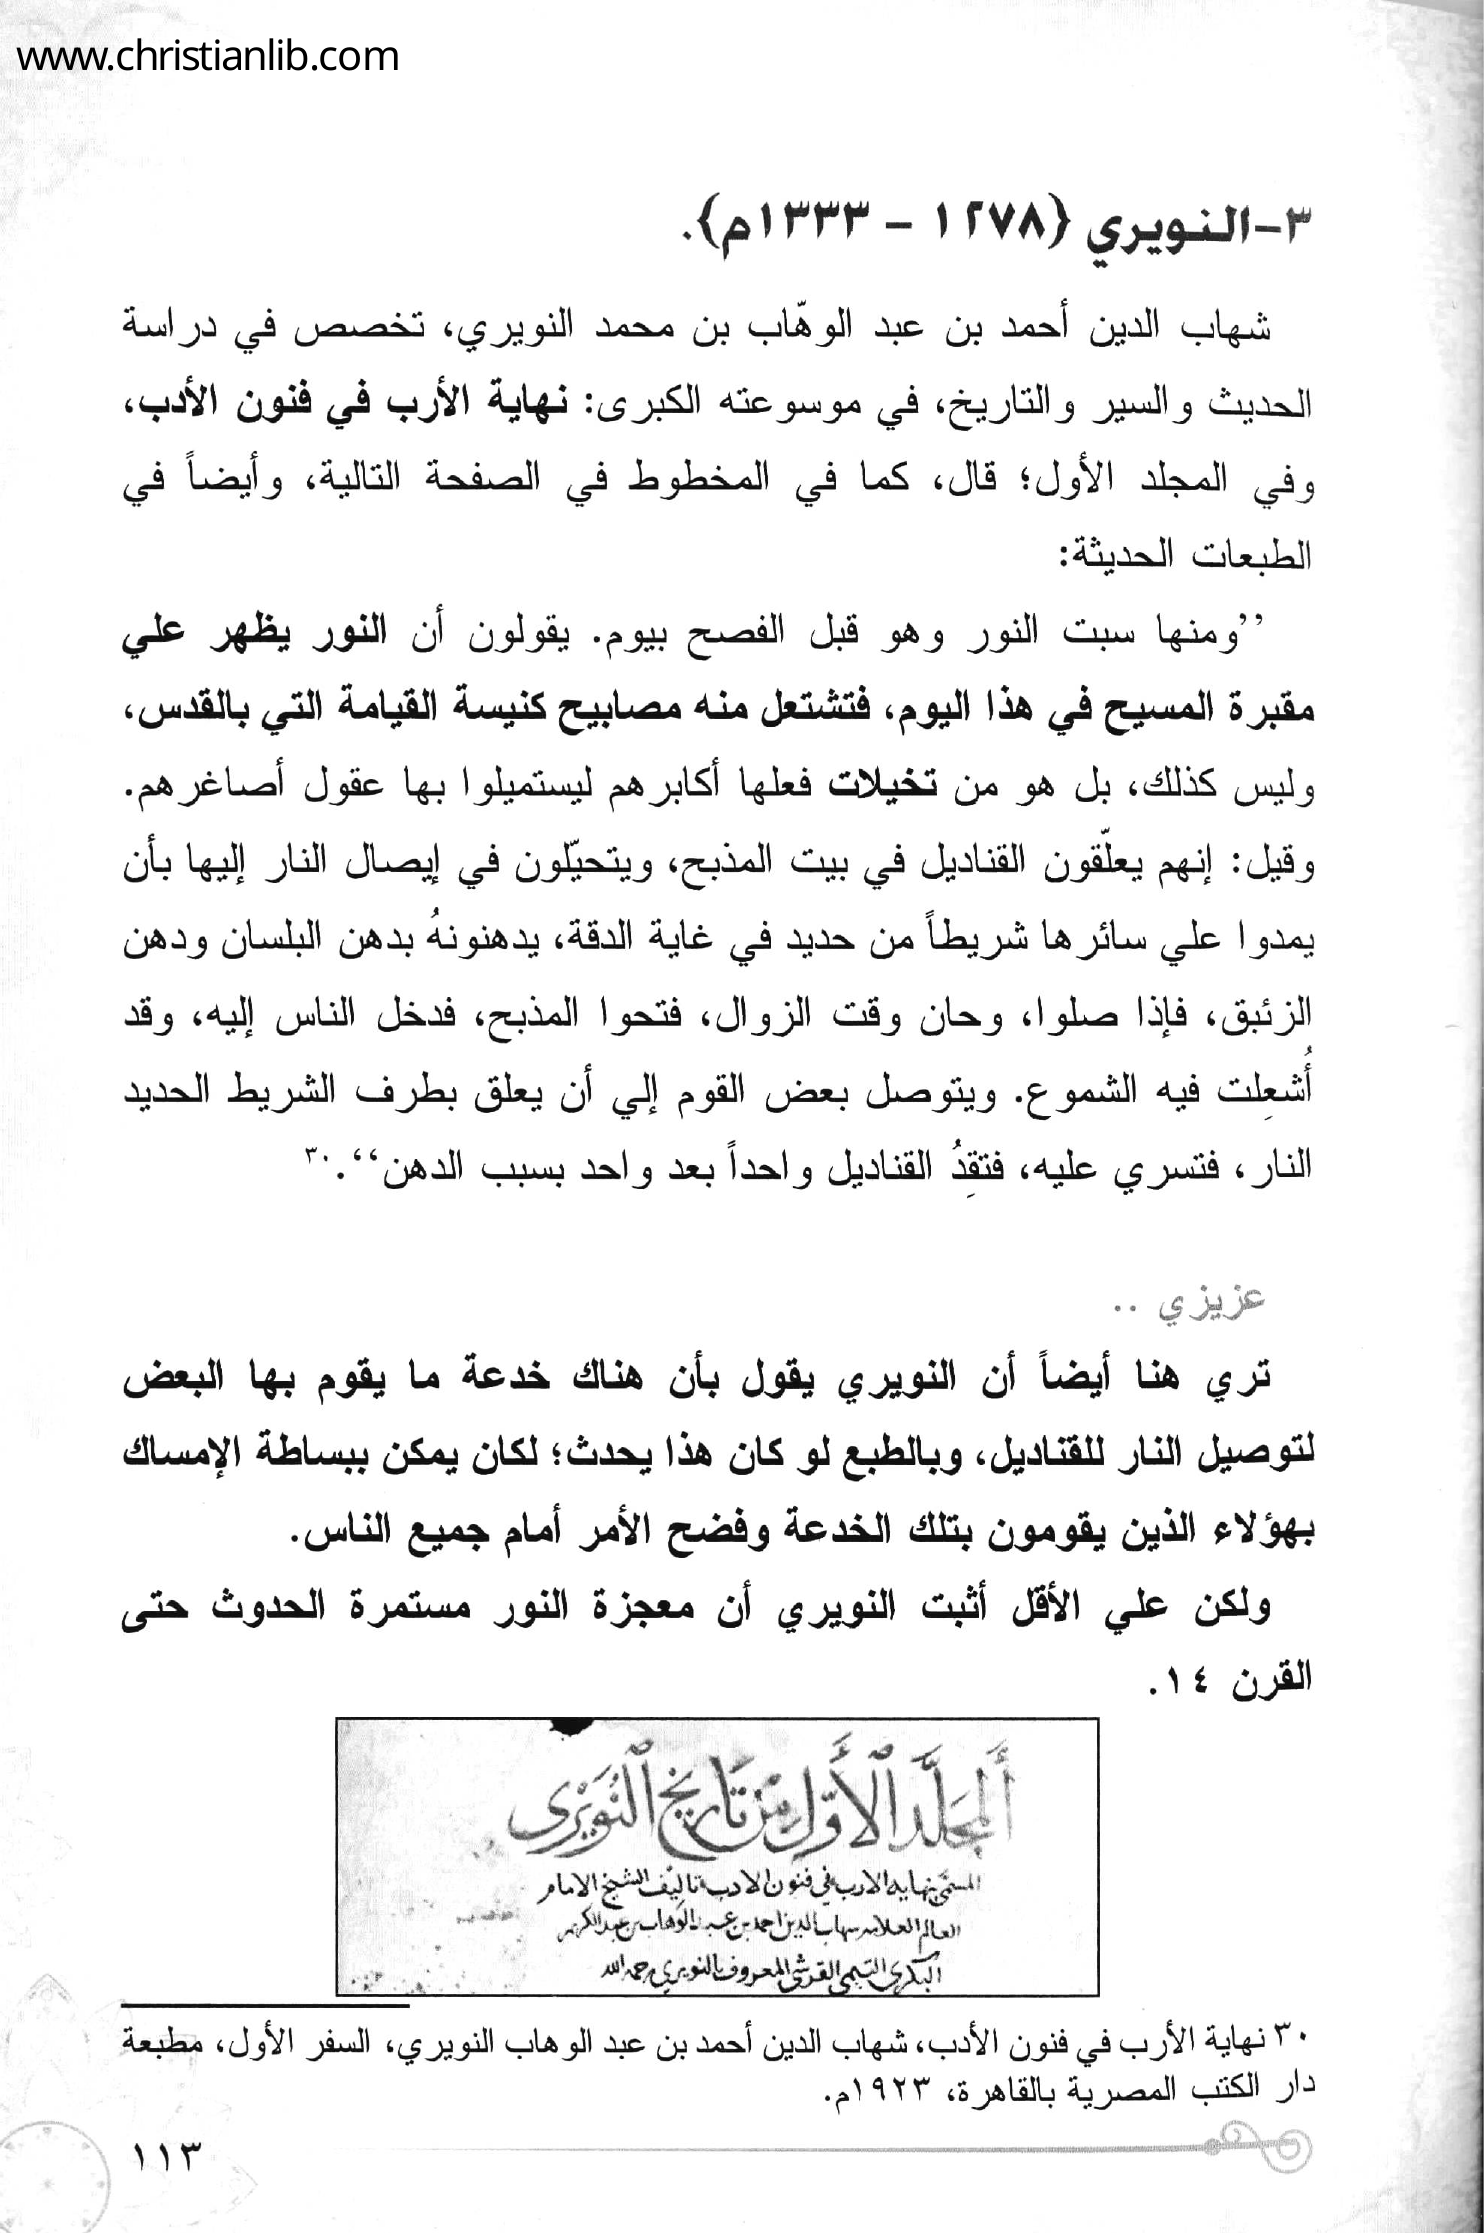 www.christianlib.com
٣-النويري {١٢٧٨ – ١٣٣٣م}.
شهاب الدين أحمد بن عبد الوهّاب بن محمد النويري، تخصص في دراسة
الحديث والسير والتاريخ، في موسوعته الكبرى: نهاية الأرب في فنون الأدب،
وفي المجلد الأول؛ قال، كما في المخطوط في الصفحة التالية، وأيضاً في
الطبعات الحديثة:
’’ومنها سبت النور وهو قبل الفصح بيوم. يقولون أن النور يظهر علي
مقبرة المسيح في هذا اليوم، فتشتعل منه مصابيح كنيسة القيامة التي بالقدس،
وليس كذلك، بل هو من تخيلات فعلها أكابرهم ليستميلوا بها عقول أصاغرهم.
وقيل: إنهم يعلّقون القناديل في بيت المذبح، ويتحيّلون في إيصال النار إليها بأن
يمدوا علي سائرها شريطاً من حديد في غاية الدقة، يدهنونهُ بدهن البلسان ودهن
الزئبق، فإذا صلوا، وحان وقت الزوال، فتحوا المذبح، فدخل الناس إليه، وقد
أُشعِلت فيه الشموع. ويتوصل بعض القوم إلي أن يعلق بطرف الشريط الحديد
النار، فتسري عليه، فتقِدُ القناديل واحداً بعد واحد بسبب الدهن‘‘.٣٠
عزيزي ..
تري هنا أيضاً أن النويري يقول بأن هناك خدعة ما يقوم بها البعض
لتوصيل النار للقناديل، وبالطبع لو كان هذا يحدث؛ لكان يمكن ببساطة الإمساك
بهؤلاء الذين يقومون بتلك الخدعة وفضح الأمر أمام جميع الناس.
ولكن علي الأقل أثبت النويري أن معجزة النور مستمرة الحدوث حتى
القرن ١٤.
أَلمجَلَّد الأَوَّل مِن تَاريخ النُوَيْرى
المسمى نهايه الارب فى فنون الادب تاليف الشيخ الامام
العالم العلامه شهاب الدين احمد بن عبد الوهاب بن عبد الكريم
البكرى التيمى القرشى المعروف بالنويري رحمه الله
٣٠ نهاية الأرب في فنون الأدب، شهاب الدين أحمد بن عبد الوهاب النويري، السفر الأول، مطبعة
دار الكتب المصرية بالقاهرة، ١٩٢٣م.
١١٣